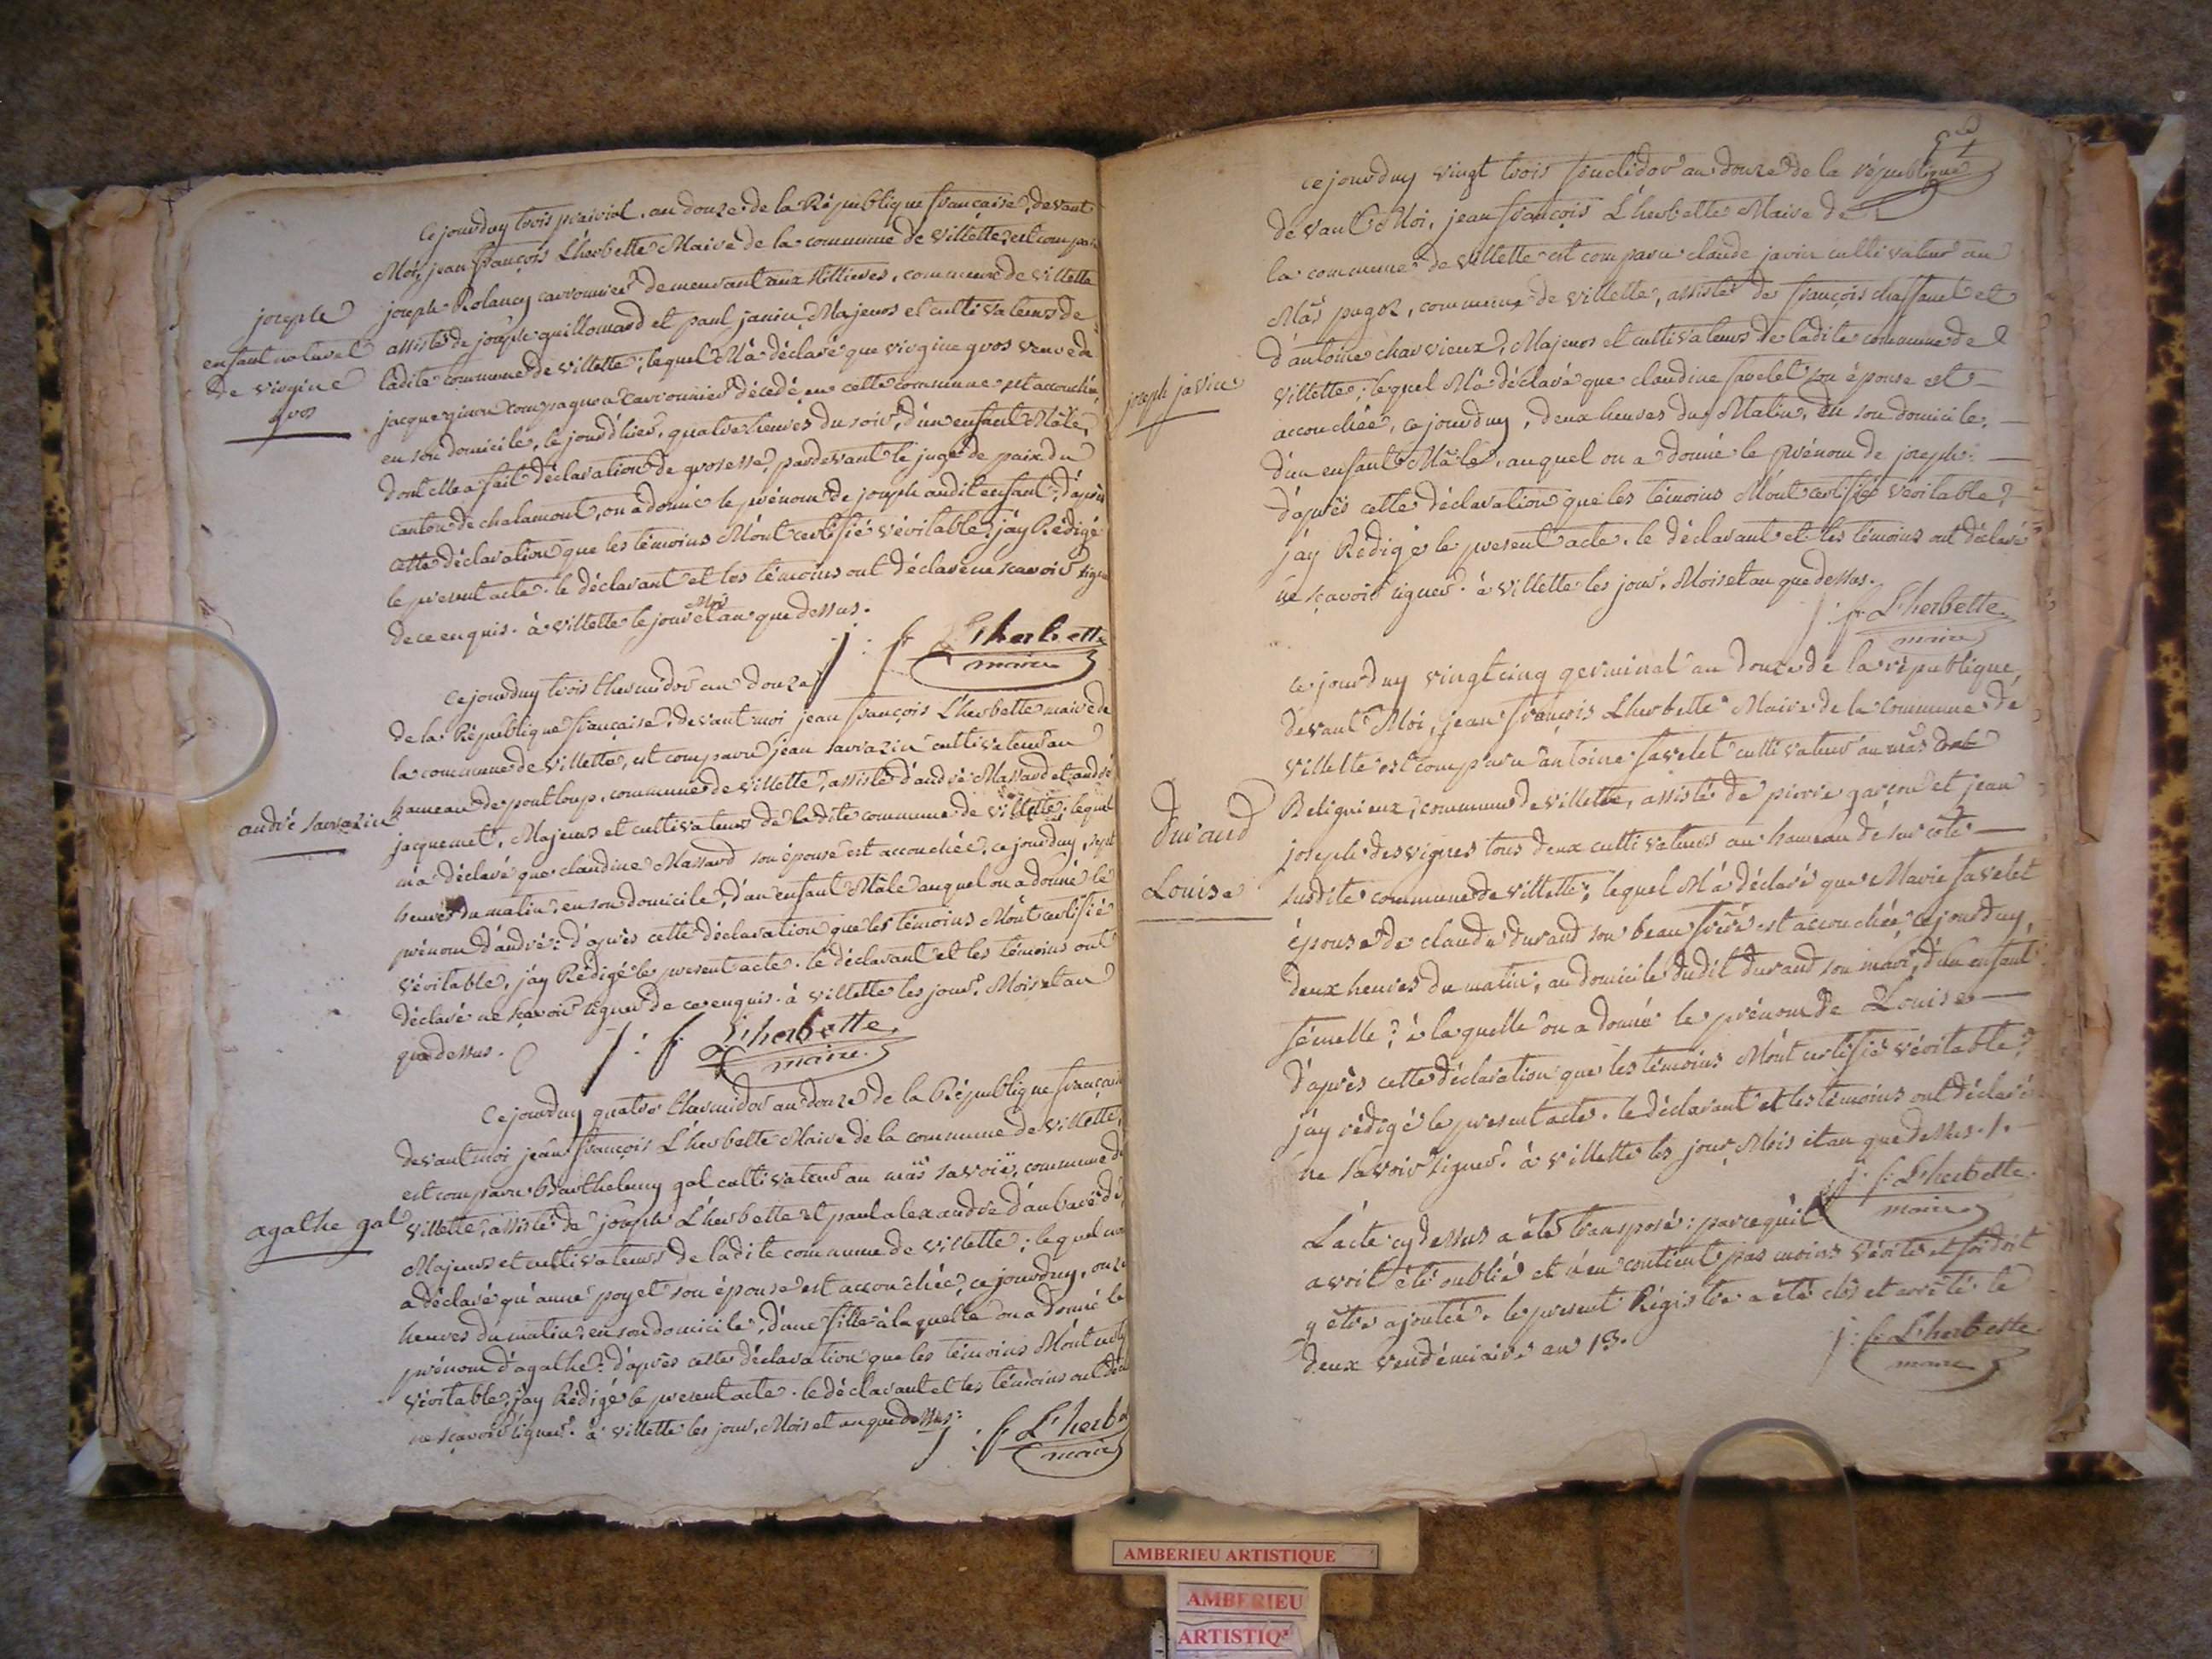 Ce jourduy trois prairial, an douze de la République française, devant
Moi, jean françois L'herbette Maire de la commune de villette, est comparu
joseph Rolancy carronnier demeurant aux commune de villette
assisté de joseph guillomard et paul janin, Majeurs et cultivateurs de
ladite commune de villette; lequel M'a déclaré que virgine gros veuve de
jacque compagnon carronnier décédé en cette commune est accouchée,
en son domicile, le jour d'hier, quatre heures du soir, d'un enfant Mâle,
dont elle a fait déclaration de grosesse, pardevant le juge de paix du
canton de chalamont, on a donné le prénom de joseph audit enfant; d'après
cette déclaration que les témoins M'ont certifié véritable, j'ay Rédigé
le present acte. le déclarant et les témoins ont déclaré ne scavoir signer
de ce enquis. à villette le jour Mois et an que dessus.
j: f L'herbette
maire
joseph
enfant naturel
de virgine
gros
Ce jourduy trois thermidor an douze
de la République française, devant moi jean françois L'herbette maire de
la commune de villette, est comparu jean sarrazin cultivateur au
hameau de pont loup, commune de villette, assisté d'andré Massard et andré
jacquemet, Majeurs et cultivateurs de ladite commune de villette; lequel
m'a déclaré que claudine Massard son épouse est accouchée, ce jourduy, sept
heures du matin, en son domicile, d'un enfant Mâle auquel on a donné le
prénom d'andré: d'après cette déclaration que les témoins M'ont certifié
véritable, j'ay Rédigé le present acte. le déclarant et les témoins ont
déclaré ne sçavoir signer de ce enquis. à villette les jour, Mois et an
que dessus.
j: f. L'herbette
maire.
andré sarrazin
Ce jourduy quatre thermidor an douze de la République française
devant moi jean françois L'herbette Maire de la commune de villette,
est comparu Barthelemy gal cultivateur au mâs savoie, commune de
villette, assisté de joseph L'herbette et paul alexandre d'aubarède,
Majeurs et cultivateurs de ladite commune de villette; lequel m'a
a déclaré qu'anne poyet son épouse est accouchée, ce jourduy, onze
heures du matin, en son domicile, d'une fille à laquelle on a donné le
prénom d'agathe: d'après cette déclaration que les témoins M'ont certifié
véritable, j'ay Rédigé le present acte. le déclarant et les témoins ont déclaré
ne sçavoir signer. à villette les jour, Mois et an que dessus:
j: f L'herb
maire
agathe gal
ce jourduy vingt trois fructidor an douze de la république
devant Moi, jean françois L'herbette Maire de
la commune de villette est comparu claude javin cultivateur au
Mâs pugoz, commune de villette, assisté de françois chaffanel et
d'antoine charvieux, Majeurs et cultivateurs de ladite commune de
villette; lequel M'a déclaré que claudine favelet son épouse est
accouchée, ce jourduy, deux heures du Matin, en son domicile,
d'un enfant Mâle, auquel on a donné le prénom de joseph:
d'après cette déclaration que les témoins M'ont certifié véritable,
j'ay Rédigé le present acte. le déclarant et les témoins ont déclaré
ne sçavoir signer. à villette les jour, Mois et an que dessus.
j: f L'herbette
maire
joseph javin
Ce jourduy vingt cinq germinal an douze de la république,
devant Moi, jean françois L'herbette Maire de la commune de
villette est comparu antoine favelet cultivateur au mâs
Religrieux, commune de villette, assisté de pierre garçon et jean
joseph desvignes tous deux cultivateurs au hameau de sur côte
susdite commune de villette; lequel M'a déclaré que Marie favelet
épouse de claude durand son beau frère est accouchée, ce jourduy,
deux heures du matin, au domicile dudit durand son mari, d'un enfant
fémelle, à laquelle on a donné le prénom de Louise
d'après cette déclaration que les témoins M'ont certifié véritable,
j'ay rédigé le present acte. le déclarant et les témoins ont déclaré
ne savoir signer. à villette les jour, Mois et an que dessus.
j: f: L'herbette
maire
durand
Louise
L'acte cy dessus a été transposé: parcequ'il
avoit été oublié et n'en contient pas moins vérité et foi doit
y être ajoutée. le present Régistre a été clos et arrêté le
deux vendémiaire an 13.
j: f: L'herbette
maire
AMBERIEU ARTISTIQUE
AMBERIEU
ARTISTIQ